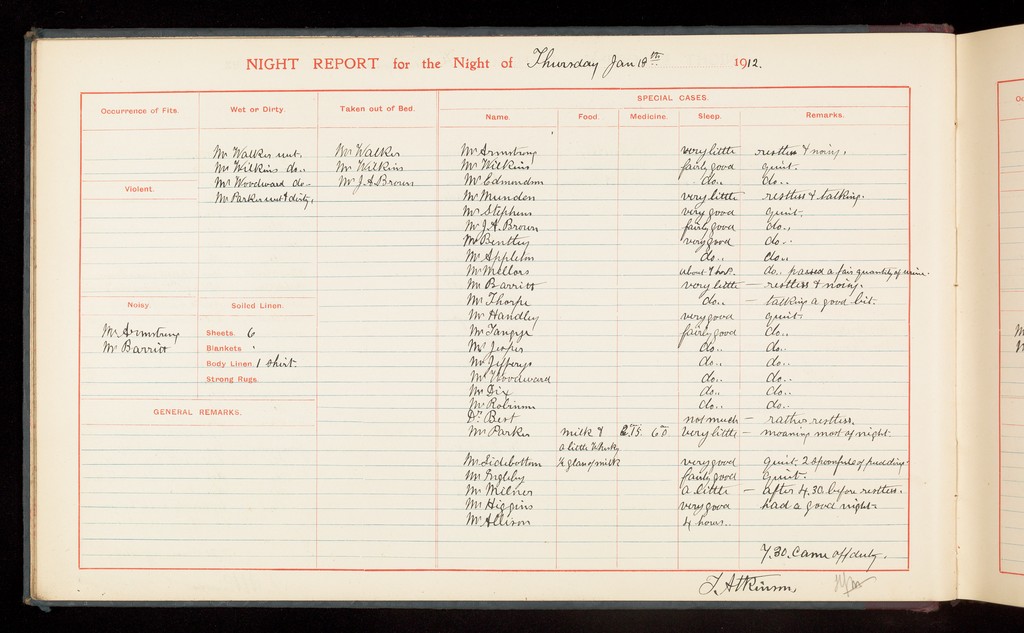 NIGHT REPORT for the Night of Thursday Jan 18th 1912.
Occurrence of Fits.
Wet or Dirty.
Mr Walker wet.
Mr Wilkins do..
Mr Woodward do..
Mr Parker wet & dirty.
Taken out of Bed.
Mr Walker
Mr Wilkins
Mr J. A. Brown
Violent.
Noisy.
Mr Armstrong
Mr Barritt
Soiled Linen.
Sheets. 6
Blankets "
Body Linen. 1 shirt.
Strong Rugs.
GENERAL REMARKS.
SPECIAL CASES.
Name. Food. Medicine. Sleep. Remarks.
Mr Armstrong very little restless & noisy.
Mr Wilkins fairly good quiet.
Mr Edmondson do.. do..
Mr Munden very little restless & talking.
Mr Stephens very good quiet.
Mr J. A. Brown fairly good do..
Mr Bentley very good do..
Mr Appleton do.. do..
Mr Mellors about 7 hrs. do.. passed a fair quantity of urine.
Mr Barritt very little — restless & noisy.
Mr Thorpe do.. — talking a good bit.
Mr Handley very good quiet.
Mr Tangye fairly good do..
Mr Jesper do.. do..
Mr Jefferys do.. do..
Mr Woodward do.. do..
Mr Dix do.. do..
Mr Robinson do.. do..
Dr Best not much — rather restless.
Mr Parker milk & 2.15. 6.0. very little — moaning most of night.
a little Whisky
Mr Sidebottom ½ glass of milk very good quiet, 2 spoonfuls of pudding.
Mr Ingleby fairly good quiet.
Mr Milner a little — after 4.30 before restless.
Mr Higgins very good had a good night.
Mr Allison 4 hours..
7.30. Came off duty.
T. Atkinson,